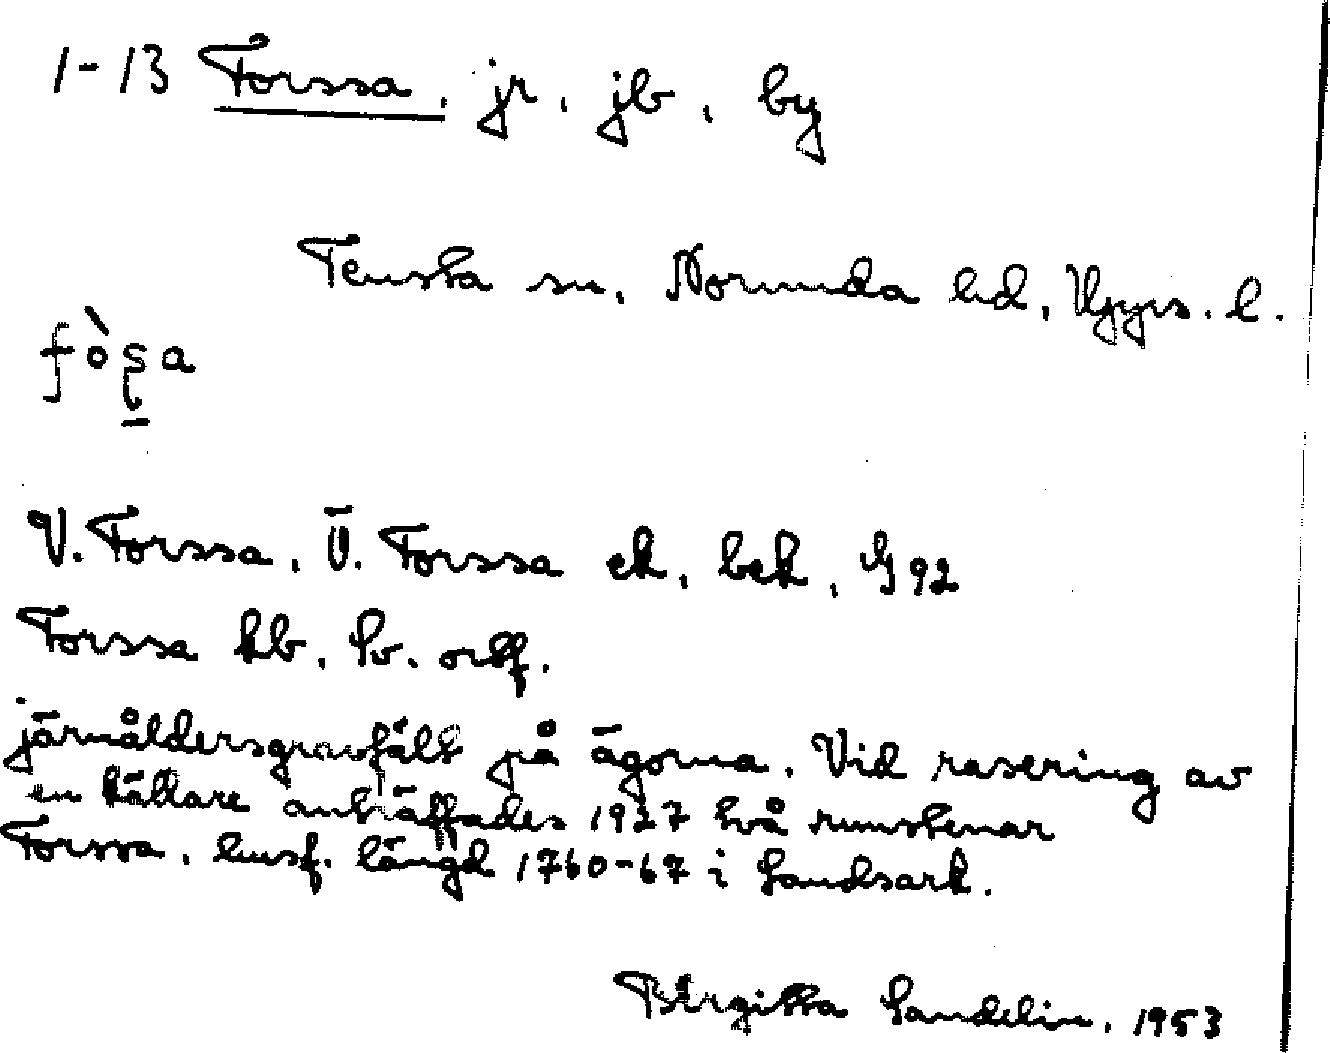 1-13 Forssa, jr, jb, by
Tensta sn, Norunda hd, Upps. l.
fòʂa
V. Forssa, Ö. Forssa ek, bek, G 92
Forssa kb, Sv. ortf.
järnåldersgravfält på ägorna. Vid rasering av
en källare anträffades 1927 två runstenar
Forssa, husf. längd 1760-67 i Landsark.
Birgitta Sandelin, 1953